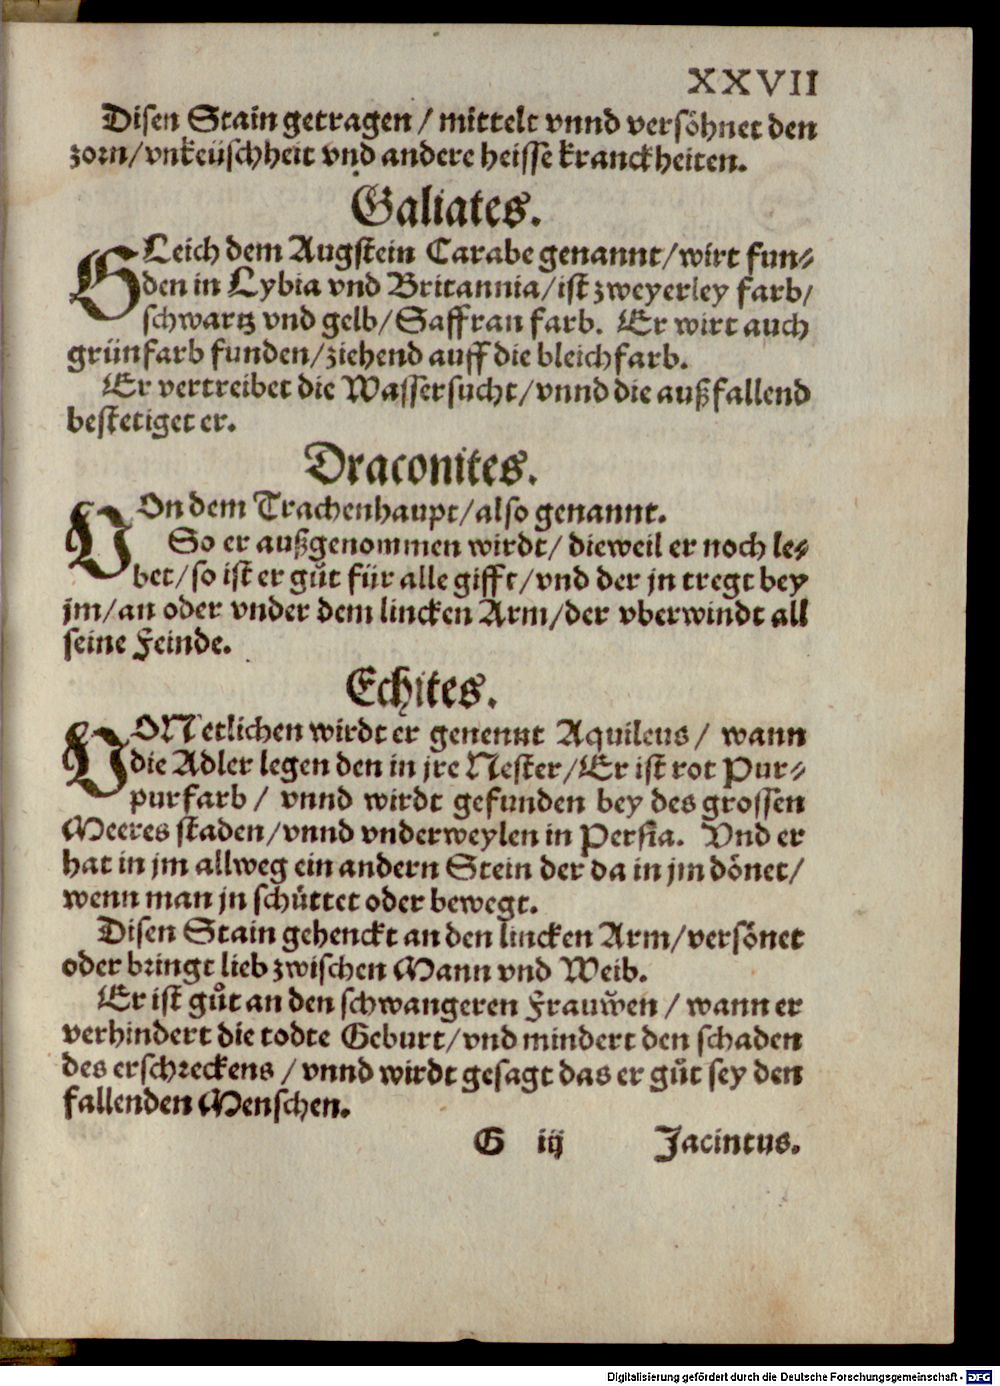 XXVII
Disen Stain getragen / mittelt vnnd versöhnet den
zorn/vnkeüschheit vnd andere heisse kranckheiten.
Galiates.
GLeich dem Augstein Carabe genannt/wirt fun-
den in Lybia vnd Britannia/ist zweyerley farb/
schwartz vnd gelb/Saffran farb. Er wirt auch
grünfarb funden/ziehend auff die bleichfarb.
Er vertreibet die Wassersucht/vnnd die außfallend
bestetiget er.
Draconites.
VOn dem Trachenhaupt/also genannt.
So er außgenommen wirdt/ dieweil er noch le-
bet/so ist er gůt für alle gifft/vnd der jn tregt bey
jm/an oder vnder dem lincken Arm/der vberwindt all
seine Feinde.
Echites.
VON etlichen wirdt er genennt Aquileus/ wann
die Adler legen den in jre Nester/Er ist rot Pur-
purfarb / vnnd wirdt gefunden bey des grossen
Meeres staden/vnnd vnderweylen in Persia. Vnd er
hat in jm allweg ein andern Stein der da in jm dönet/
wenn man jn schüttet oder bewegt.
Disen Stain gehenckt an den lincken Arm/versönet
oder bringt lieb zwischen Mann vnd Weib.
Er ist gůt an den schwangeren Frauwen / wann er
verhindert die todte Geburt/vnd mindert den schaden
des erschreckens / vnnd wirdt gesagt das er gůt sey den
fallenden Menschen.
G iij Jacintus.
Digitalisierung gefördert durch die Deutsche Forschungsgemeinschaft - DFG